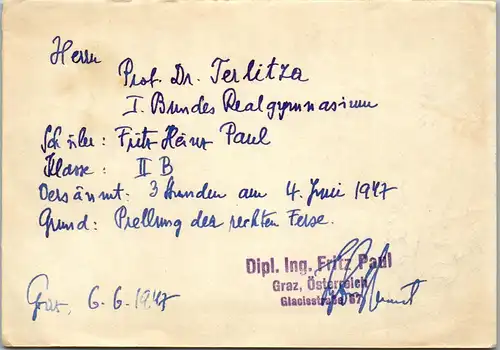 Herrn
Prof. Dr. Terlitza
I. Bundes Realgymnasium
Schüler: Fritz Heinz Paul
Klasse: II B
Versäumt: 3 Stunden am 4. Juni 1947
Grund: Prellung der rechten Ferse.
Dipl. Ing. Fritz Paul
Graz, Österreich
Glacisstraße 67
Graz, 6.6.1947